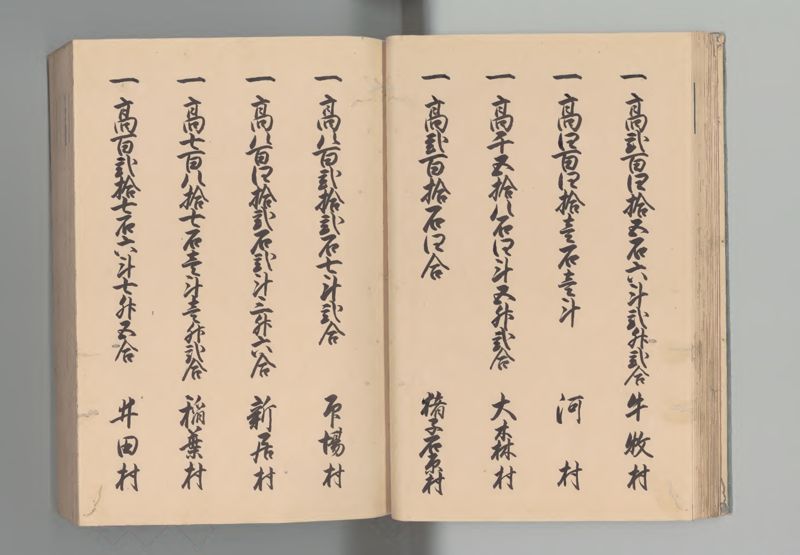 一 高弐百四拾五石六斗弐升弐合 牛牧村
一 高四百四拾壱石壱斗 河村
一 高千五拾八石四斗五升弐合 大森村
一 高弐百拾石四合
一 高八百弐拾弐石七斗弐合 印場村
一 高八百四拾弐石弐斗三升六合 新居村
一 高七百八拾七石壱斗壱升弐合 稲葉村
一 高百弐拾七石六斗七升五合 井田村